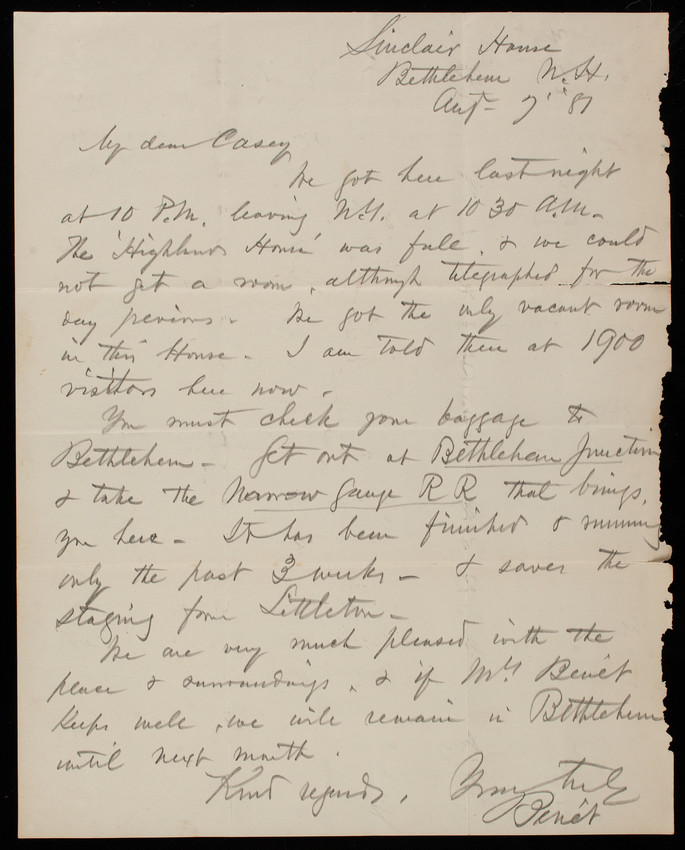 Sinclair House
Bethlehem N.H.
Aug - 7' '81
My dear Casey
We got here last night
at 10 P.M. leaving N.Y. at 10 30 A.M.
The 'Highland House' was full, & we could
not get a room, although telegraphed for the
day previous. We got the only vacant room
in this House - I am told there at 1900
visitors here now.
You must check your baggage to
Bethlehem - Get out at Bethlehem Junction
& take the Narrow Gauge R R that brings
you here - It has been finished & running
only the past 3 weeks - & saves the
staging from Littleton -
We are very much pleased with the
place & surroundings, & if Mrs Benét
keeps well, we will remain in Bethlehem
until next month.
Kind regards, Yours truly
Benét